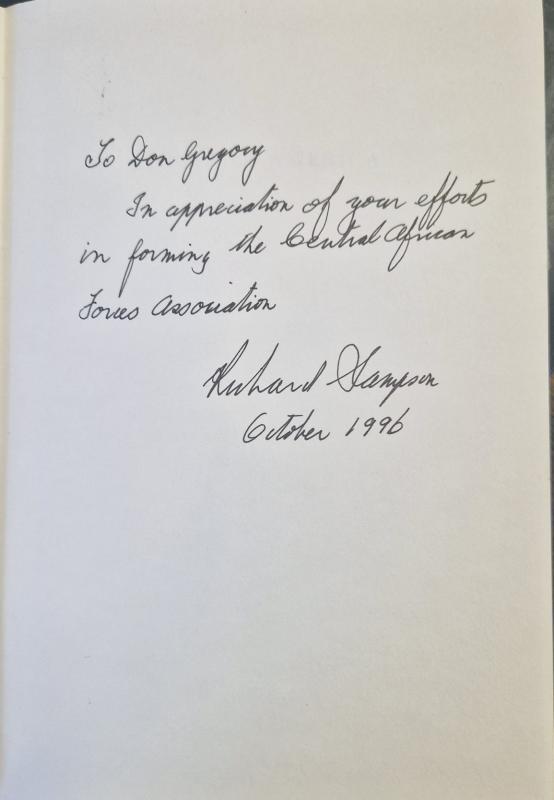 To Don Gregory
In appreciation of your efforts
in forming the Central African
Forces Association
Richard Sampson
October 1996